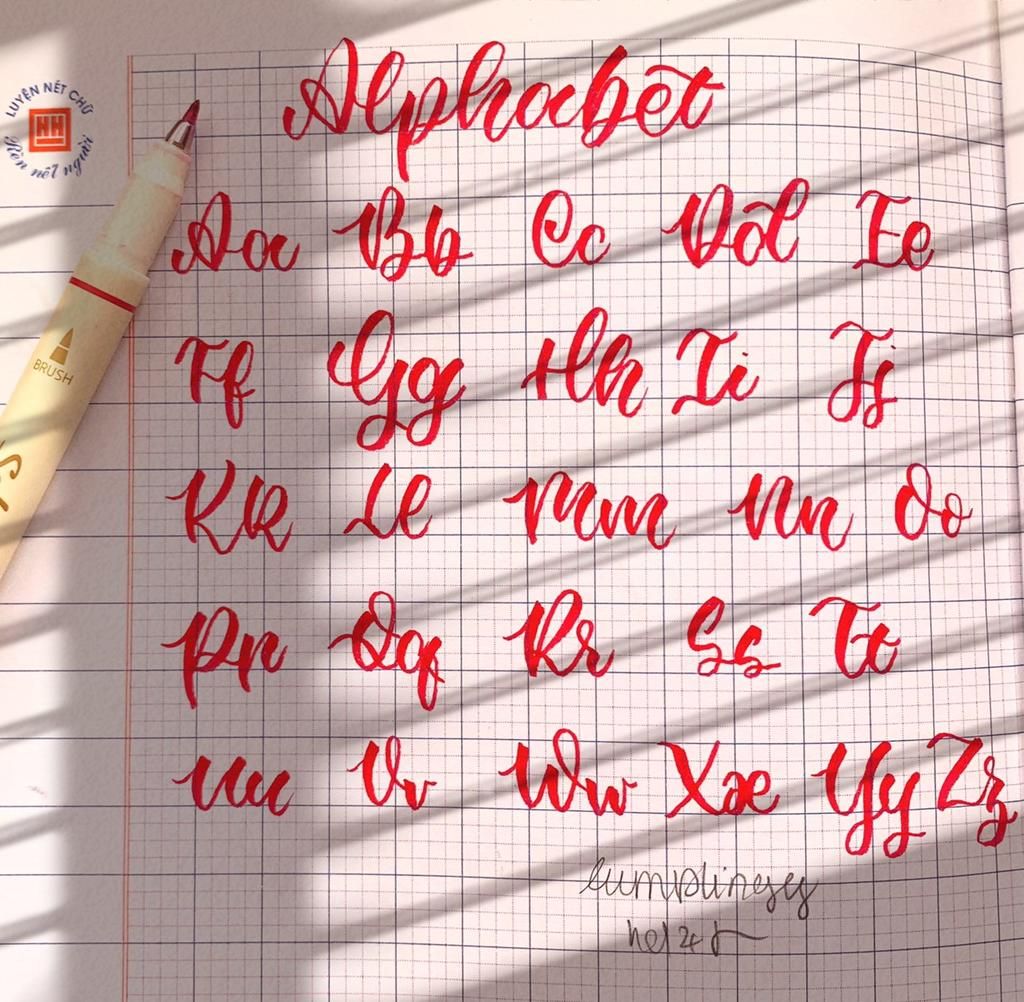 Alphabet
LUYỆN NÉT CHỮ
NH
Rèn nết người
Aa Bb Cc Dd Ee
BRUSH
Ff Gg Hh Ii Jj
Kk Ll Mm Nn Oo
Pp Qq Rr Ss Tt
Uu Vv Ww Xx Yy Zz